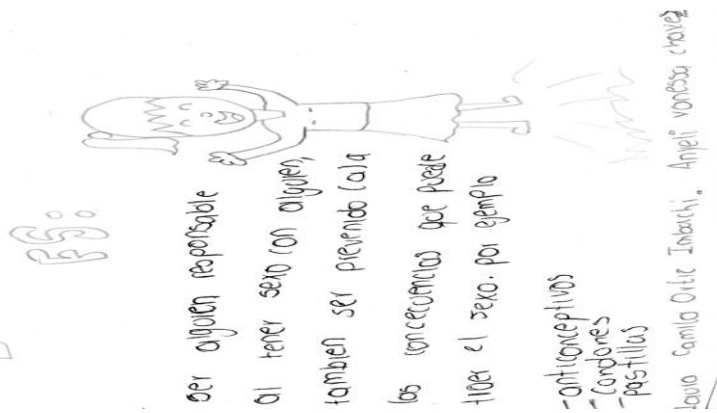 ES:
ser alguien responsable
al tener sexo con alguien,
tambien ser prevenido (a) a
las concecuencias que puede
traer el sexo. por ejemplo
-anticonceptivos
-condones
-pastillas
Camila Ortiz Imbachi. Anyeli vanessa chavez